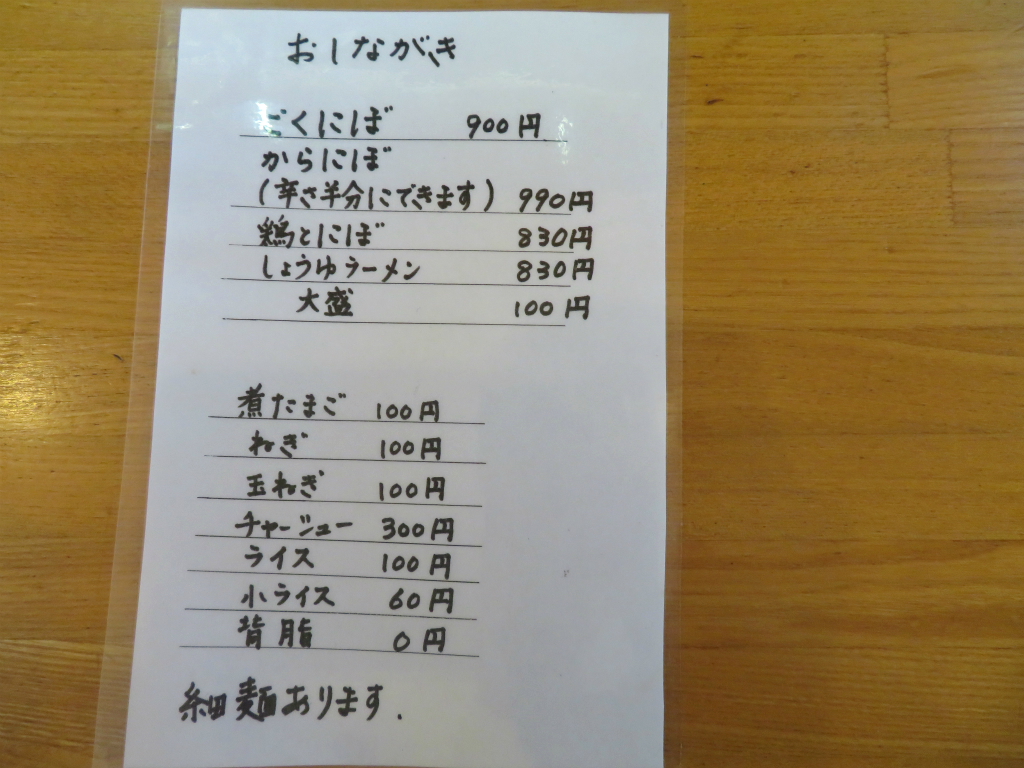 おしながき
ごくにぼ 900円
からにぼ
(辛さ半分にできます) 990円
鶏とにぼ 830円
しょうゆラーメン 830円
大盛 100円
煮たまご 100円
ねぎ 100円
玉ねぎ 100円
チャーシュー 300円
ライス 100円
小ライス 60円
背脂 0円
細麺あります.